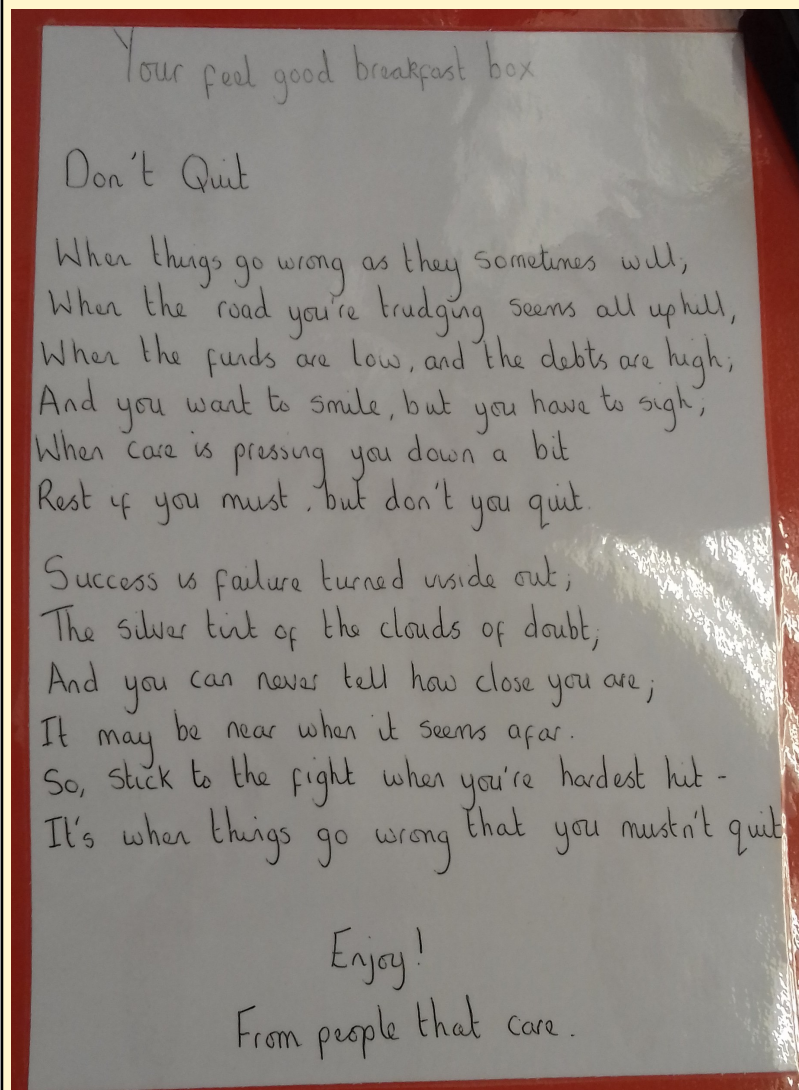 Your feel good breakfast box
Don't Quit
When things go wrong as they sometimes will,
When the road you're trudging seems all uphill,
When the funds are low, and the debts are high;
And you want to smile, but you have to sigh;
When care is pressing you down a bit
Rest if you must, but don't you quit.
Success is failure turned inside out;
The silver tint of the clouds of doubt;
And you can never tell how close you are;
It may be near when it seems afar.
So, stick to the fight when you're hardest hit -
It's when things go wrong that you mustn't quit
Enjoy!
From people that care.